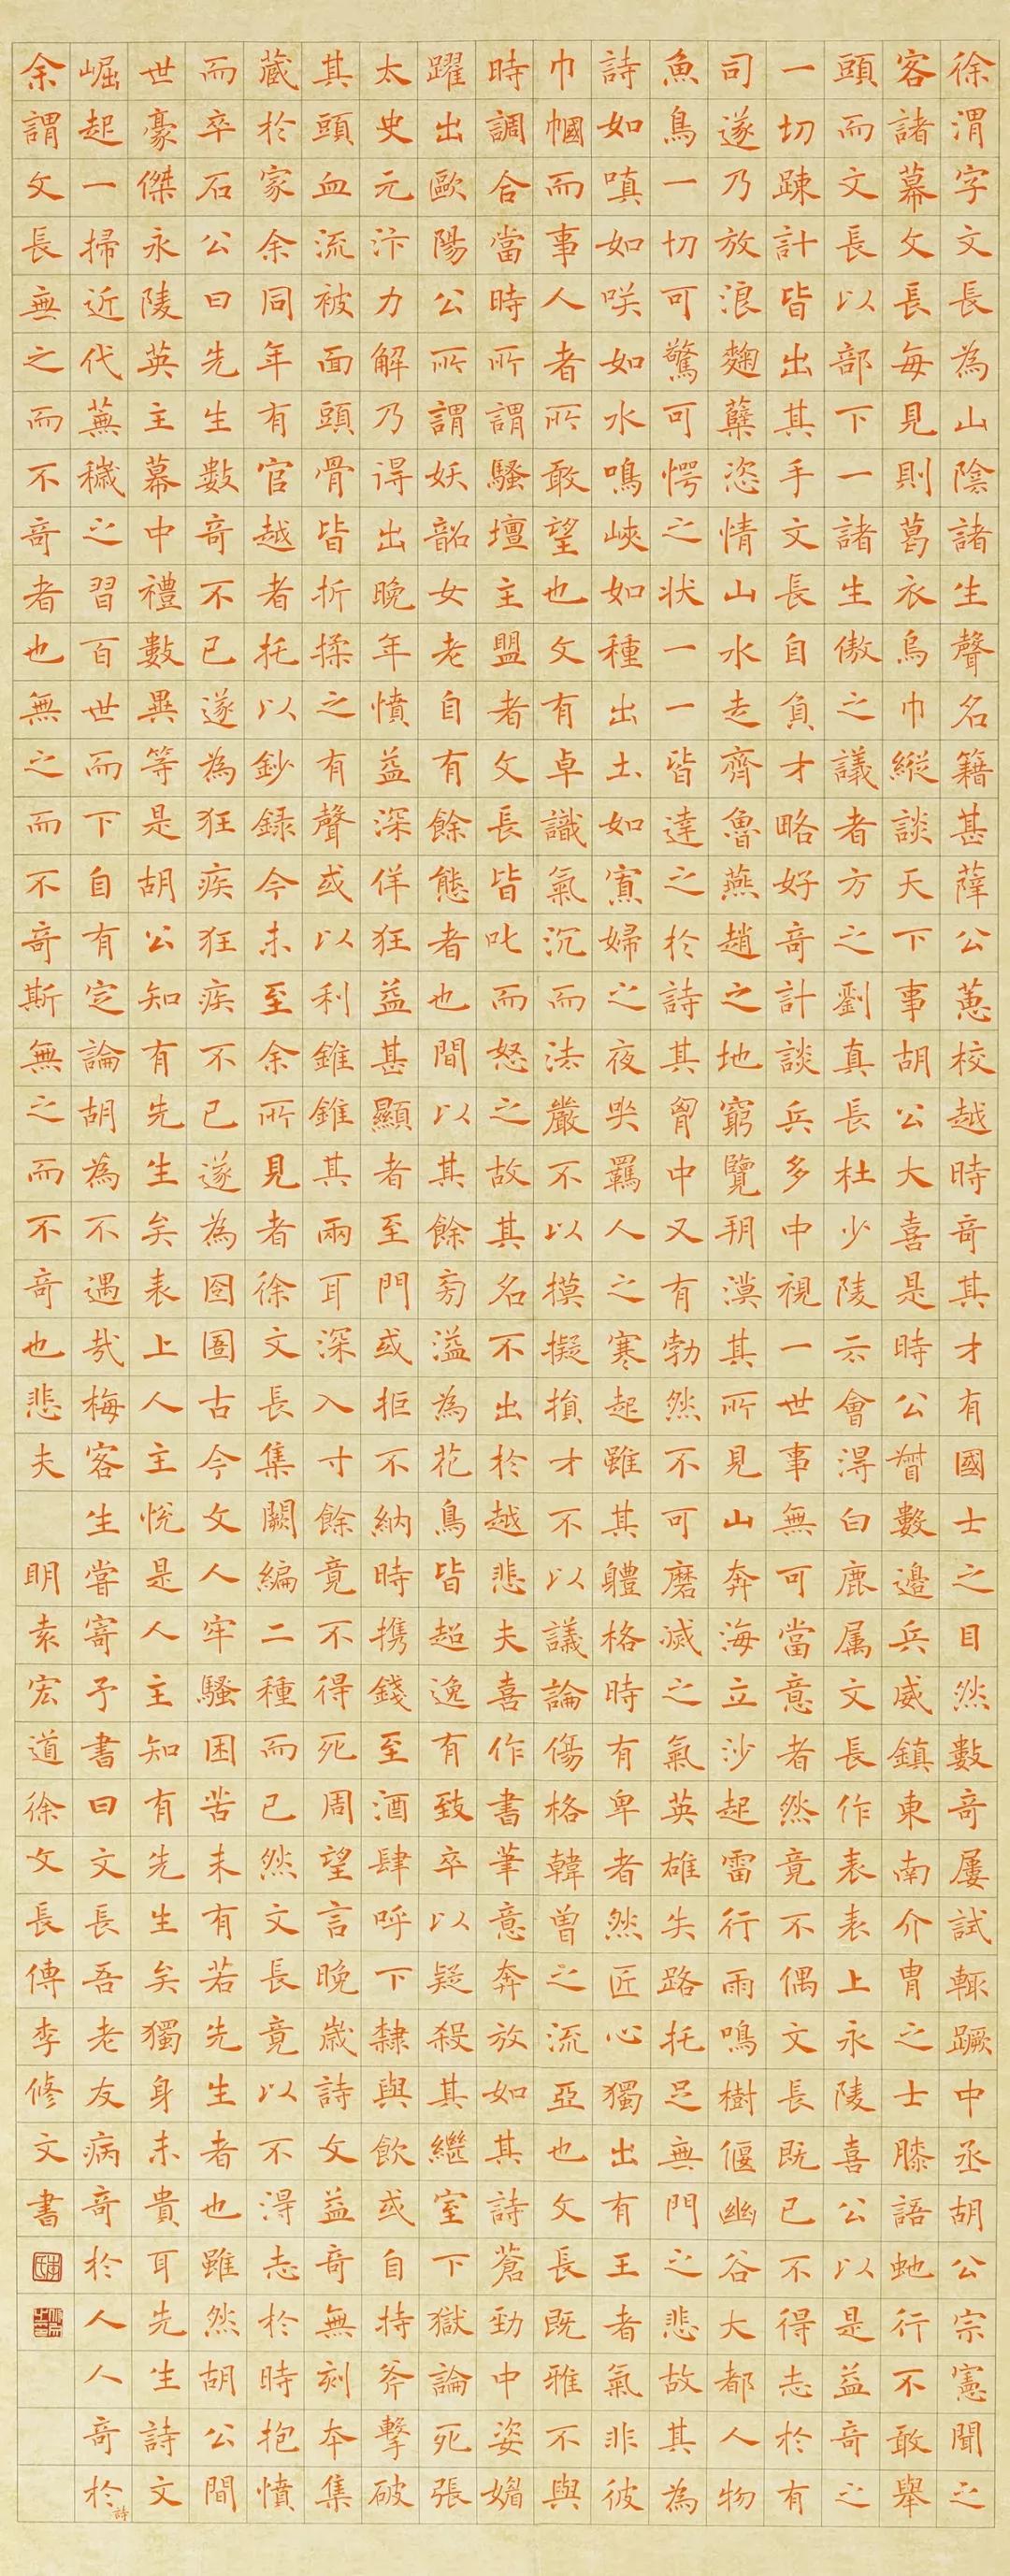 徐渭字文長為山陰諸生聲名籍甚薛公蕙校越時奇其才有國士之目然數奇屢試輒蹶中丞胡公宗憲聞之
客諸幕文長每見則葛衣烏巾縱談天下事胡公大喜是時公督數邊兵威鎮東南介胄之士膝語虵行不敢舉
頭而文長以部下一諸生傲之議者方之劉真長杜少陵云會得白鹿属文長作表表上永陵喜公以是益奇之
一切踈計皆出其手文長自負才略好奇計談兵多中視一世事無可當意者然竟不偶文長既已不得志於有
司遂乃放浪麴糵恣情山水走齊魯燕趙之地窮覽朔漠其所見山奔海立沙起雷行雨鳴樹偃幽谷大都人物
魚鳥一切可驚可愕之状一一皆達之於詩其胷中又有勃然不可磨滅之氣英雄失路托足無門之悲故其為
詩如嗔如咲如水鳴峽如種出土如寡婦之夜哭羈人之寒起雖其軆格時有卑者然匠心獨出有王者氣非彼
巾幗而事人者所敢望也文有卓識氣沉而法嚴不以摸擬損才不以議論傷格韓曾之流亞也文長既雅不與
時調合當時所謂騷壇主盟者文長皆叱而怒之故其名不出於越悲夫喜作書筆意奔放如其詩蒼勁中姿媚
躍出歐陽公所謂妖韶女老自有餘態者也間以其餘旁溢為花鳥皆超逸有致卒以疑殺其繼室下獄論死張
太史元汴力解乃得出晚年憤益深佯狂益甚顯者至門或拒不納時携錢至酒肆呼下隸與飲或自持斧擊破
其頭血流被面頭骨皆折揉之有聲或以利錐錐其兩耳深入寸餘竟不得死周望言晚歲詩文益奇無刻本集
藏於家余同年有官越者托以鈔録今未至余所見者徐文長集闕編二種而已然文長竟以不得志於時抱憤
而卒石公曰先生數奇不已遂為狂疾狂疾不已遂為囹圄古今文人牢騷困苦未有若先生者也雖然胡公間
世豪傑永陵英主幕中禮數異等是胡公知有先生矣表上人主悅是人主知有先生矣獨身未貴耳先生詩文
崛起一掃近代蕪穢之習百世而下自有定論胡為不遇哉梅客生嘗寄予書曰文長吾老友病奇於人人奇於詩
余謂文長無之而不奇者也無之而不奇斯無之而不奇也悲夫 明袁宏道徐文長傳李修文書